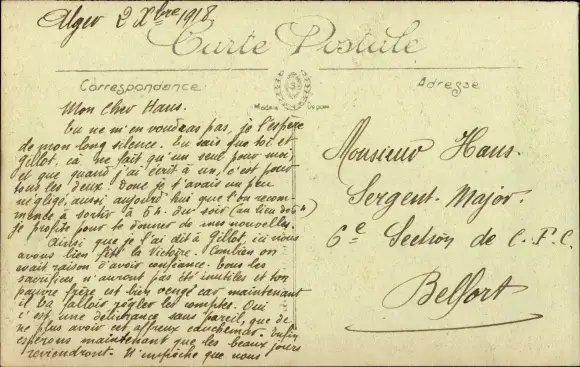 Alger 2 Xbre 1918
Carte Postale
Correspondance
Adresse
Modèle Déposé
Mon Cher Haus.
Tu ne m'en voudras pas, je l'espère
de mon long silence. Tu sais que toi et
Gillot, ça ne fait qu'un seul pour moi,
et que quand j'ai écrit à un, c'est pour
tous les deux. Donc je t'avais un peu
négligé, aussi aujourd'hui que l'on recom-
mence à sortir à 5 h. du soir (au lieu de 6 h)
je profite pour te donner de mes nouvelles.
Ainsi que je l'ai dit à Gillot, ici nous
avons bien fêté la Victoire. Combien on
avait raison d'avoir confiance. Tous les
sacrifices n'auront pas été inutiles et ton
pauvre frère est bien vengé car maintenant
il va falloir régler les comptes. Oui
c'est une délivrance sans pareil, que de
ne plus avoir cet affreux cauchemar. Enfin
espérons maintenant que les beaux jours
reviendront. N'empêche que nous
Monsieur Haus.
Sergent-Major.
6e Section de C.F.C.
Belfort